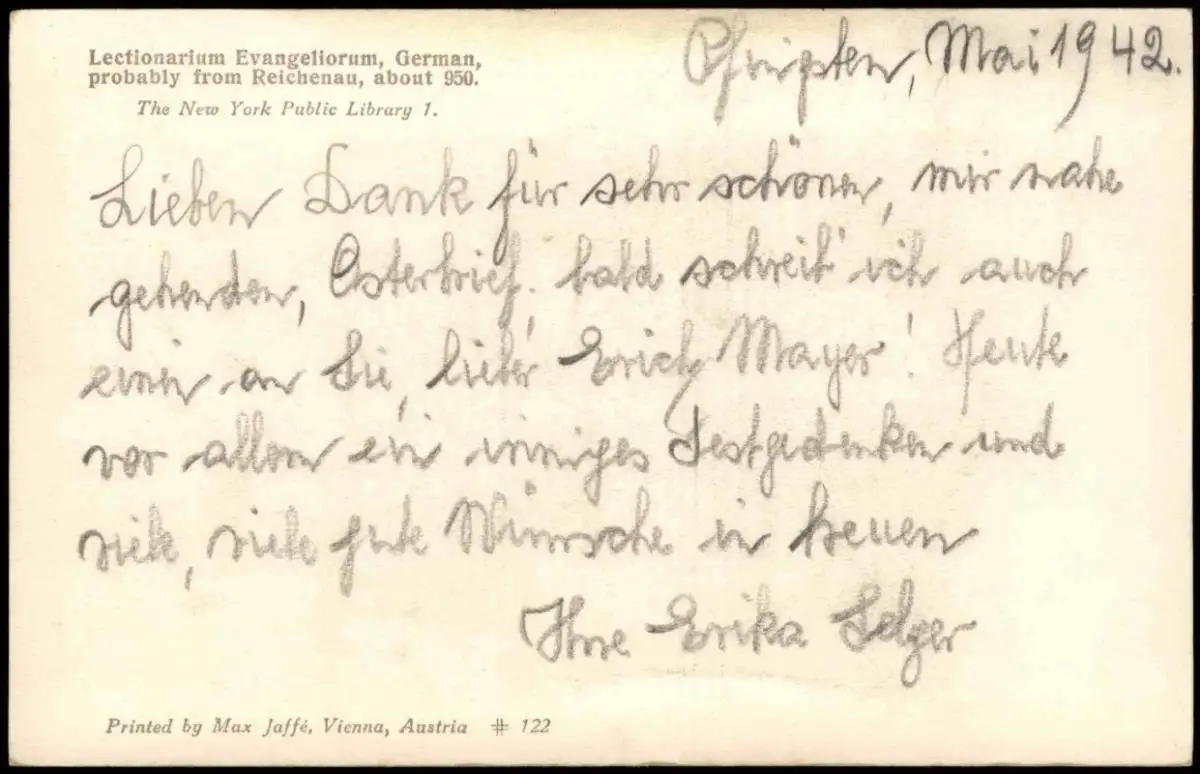 Lectionarium Evangeliorum, German,
probably from Reichenau, about 950.
The New York Public Library 1.
Pfingsten, Mai 1942.
Lieben Dank für sehr schönen, mir nahe
gehenden, Osterbrief. bald schreib' ich auch
einen an Sie, lieber Erich Mayer! Heute
vor allem ein inniges Festgedenken und
viele, viele gute Wünsche in treuen
Ihre Erika
Printed by Max Jaffé, Vienna, Austria # 122